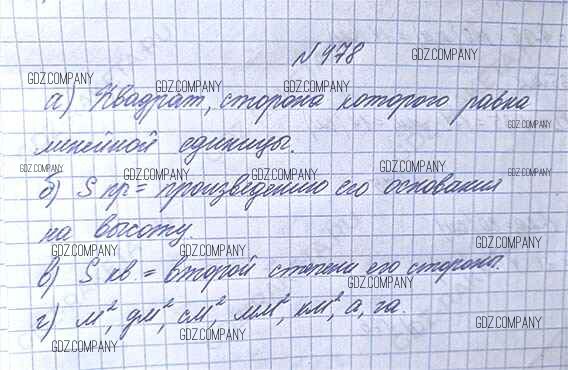 N 478
GDZ.COMPANY
GDZ.COMPANY
GDZ.COMPANY GDZ.COMPANY
а) Квадрат, сторона которого равна
GDZ.COMPANY
линейной единицы.
GDZ.COMPANY GDZ.COMPANY GDZ.COMPANY GDZ.COMPANY GDZ.COMPANY
б) S пр = произведению его основания
на высоту
GDZ.COMPANY GDZ.COMPANY GDZ.COMPANY
в) S кв. = второй степени его стороны.
GDZ.COMPANY
г) м², дм², см², мм², км², а, га.
GDZ.COMPANY GDZ.COMPANY GDZ.COMPANY